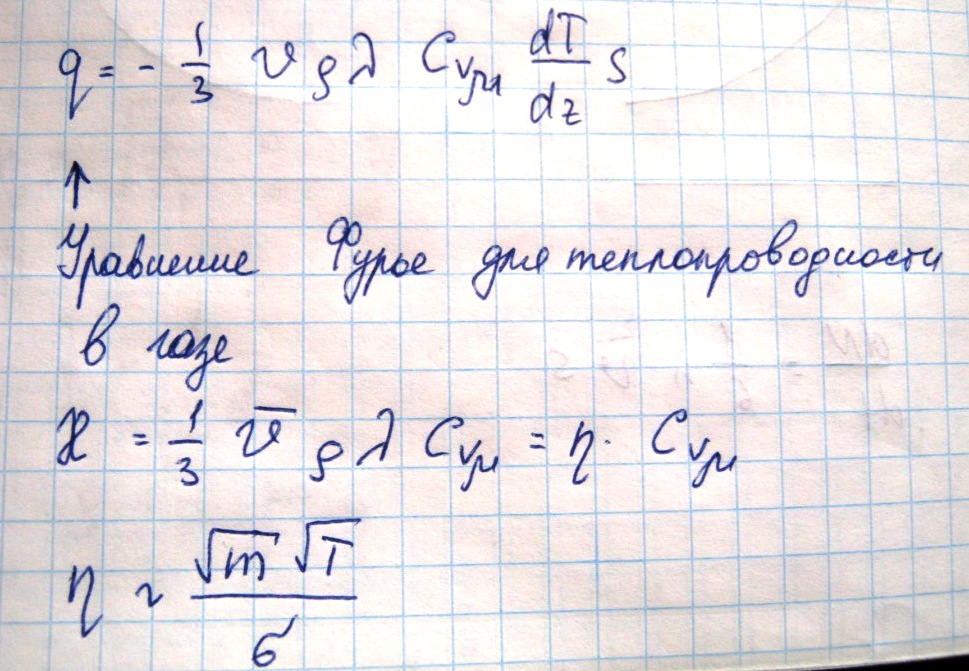 q = - 1/3 v ρ λ C_vуд dT/dz S
↑
Уравнение Фурье для теплопроводности
в газе
ϰ = 1/3 v̄ ρ λ C_vуд = η · C_vуд
η ~ √m √T / σ